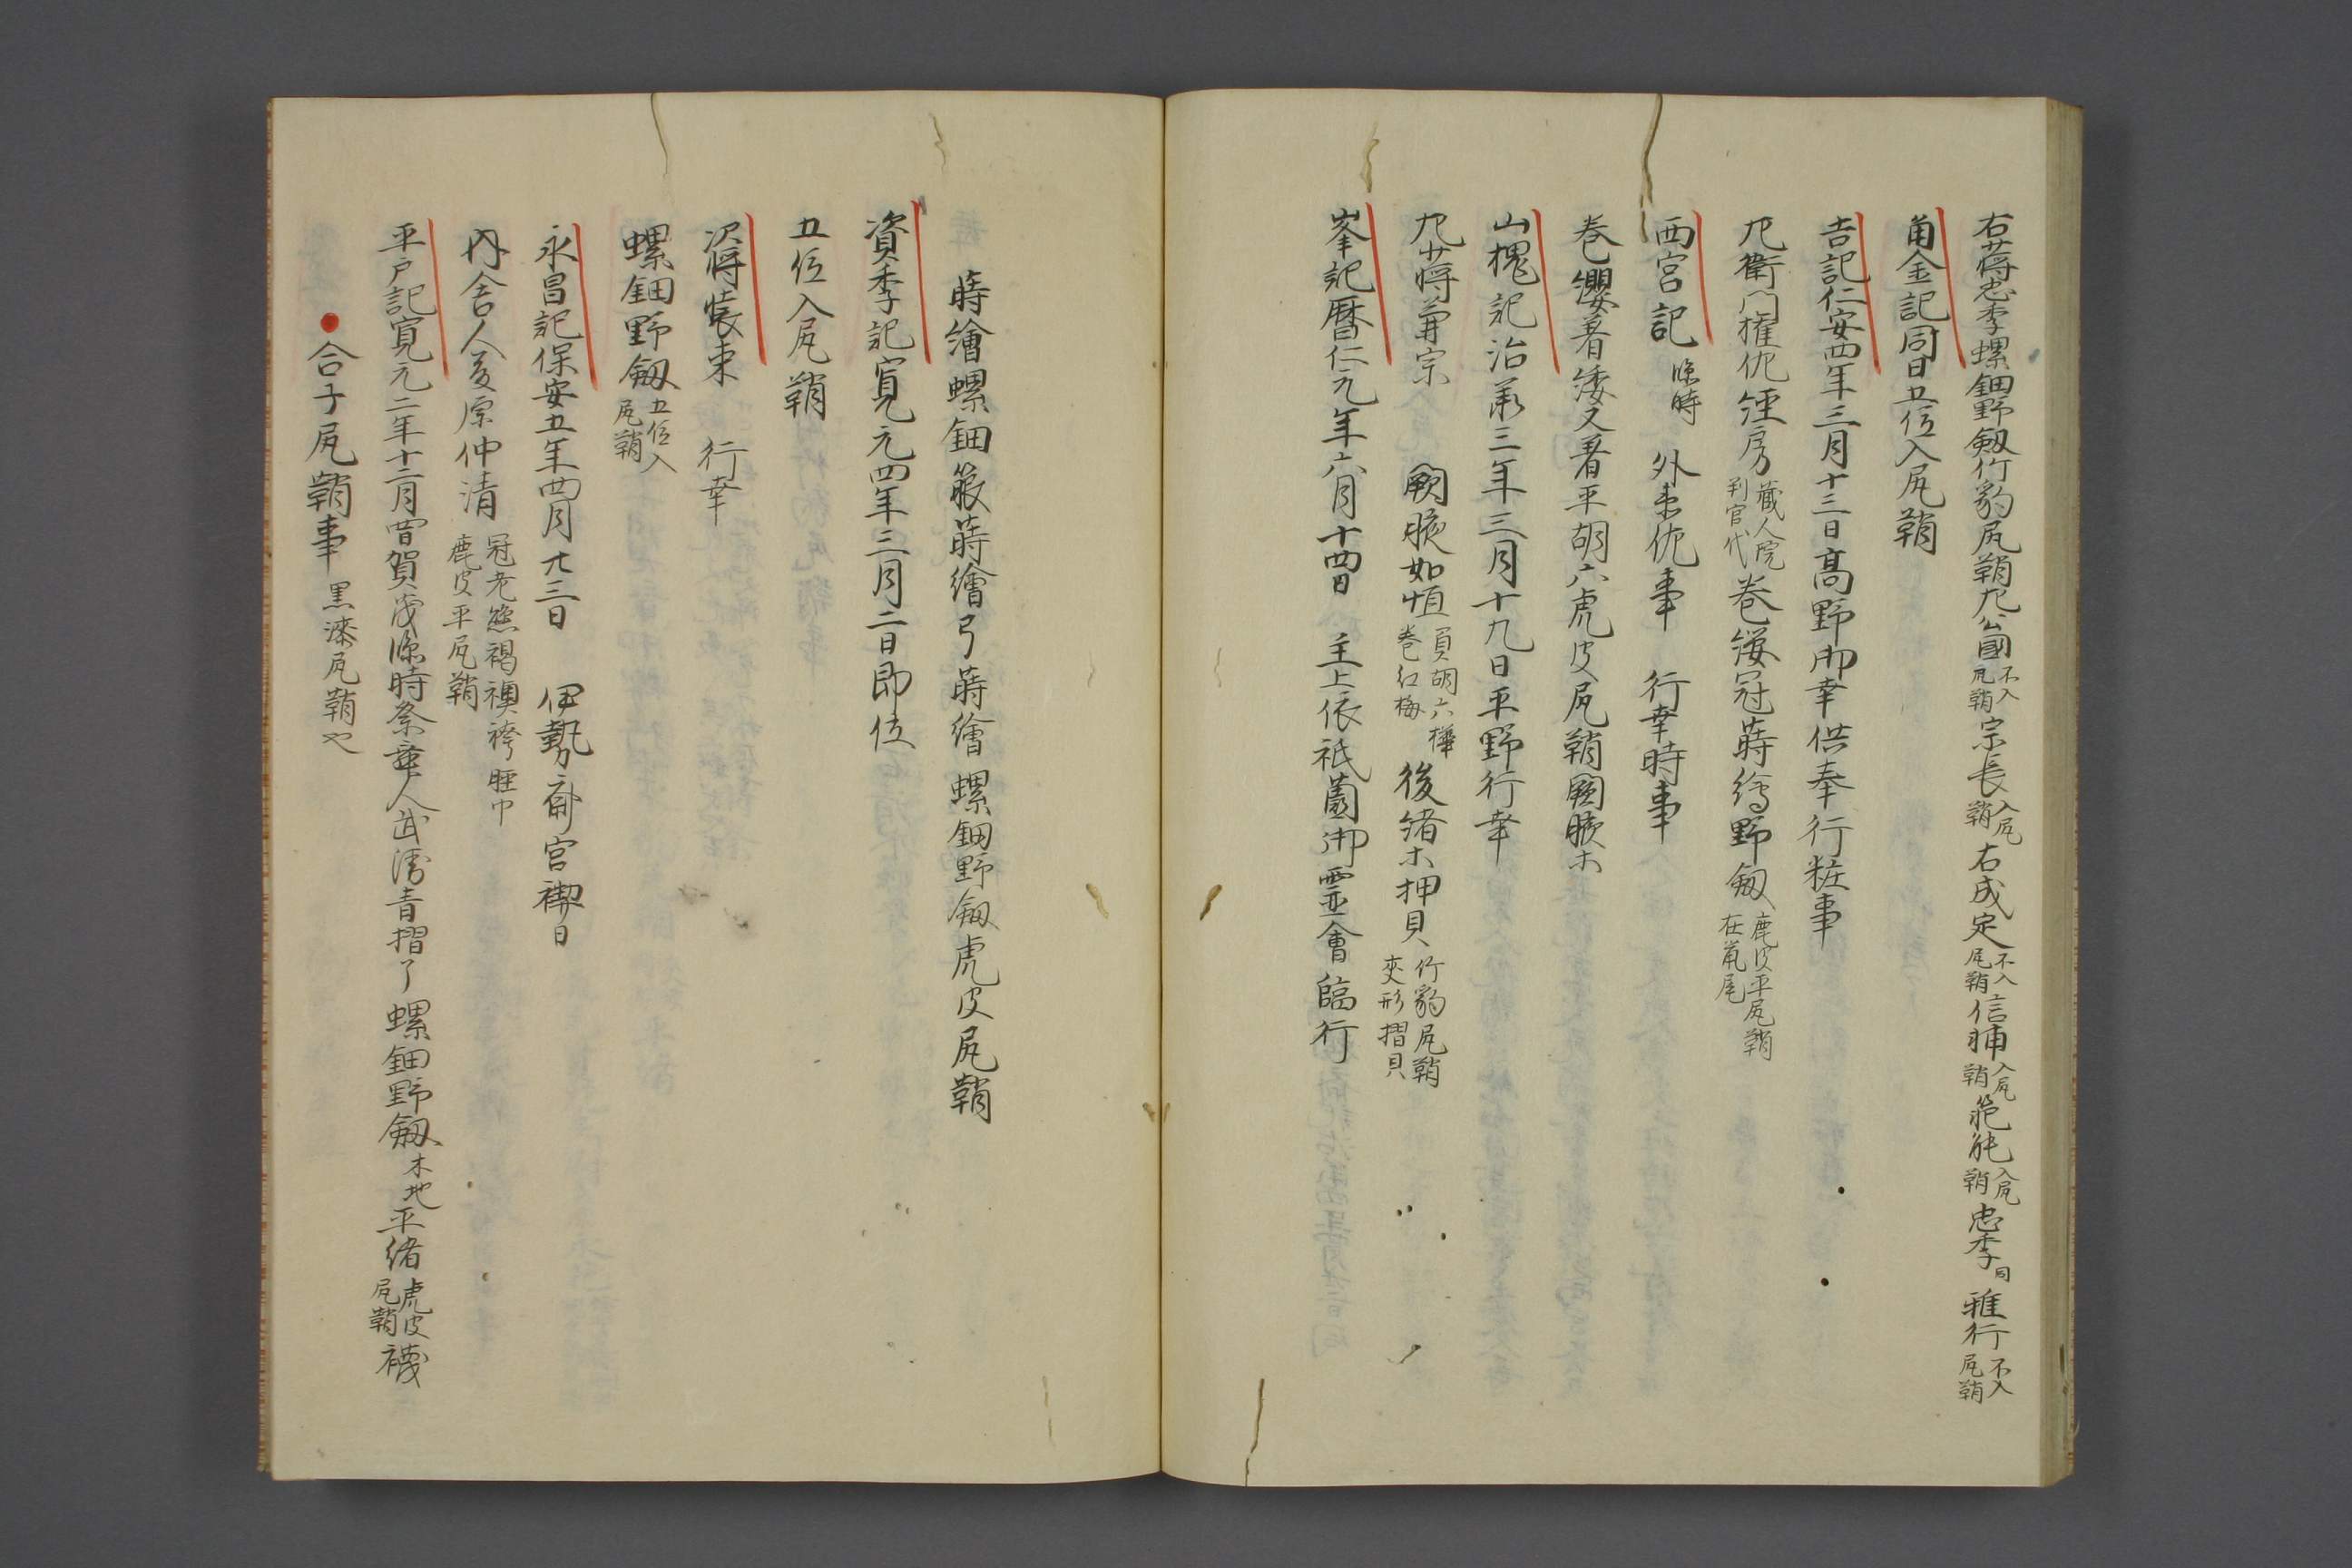 右少将忠季螺鈿野劔竹豹尻鞘左公國不入尻鞘宗長入尻鞘右成定不入尻鞘信輔入尻鞘範能入尻鞘忠季同 雅行不入尻鞘
角金記同日五位入尻鞘
吉記仁安四年三月十三日高野御幸供奉行粧事
左衛門権佐経房蔵人院判官代巻纓冠蒔繪野劔鹿皮平尻鞘在鼠尾
西宮記 臨時 外衛佐事 行幸時事
巻纓着緌又着平胡六虎皮尻鞘闕腋ホ
山槐記治承三年三月十九日平野行幸
左少将兼宗 闕腋如恒 負胡六樺巻紅梅 後緒ホ押貝 竹豹尻鞘変形摺貝
峯記暦仁元年六月十四日 主上依祇薗御霊會臨行
蒔繪螺鈿箙蒔繪弓蒔繪螺鈿野劔虎皮尻鞘
資季記寛元四年三月二日即位
五位入尻鞘
次将装束 行幸
螺鈿野劔五位入尻鞘
永昌記保安五年四月廿三日 伊勢齋宮禊日
内舎人藤原仲清 冠老懸褐襖袴脛巾鹿皮平尻鞘
平戸記寛元二年十二月四日賀茂臨時祭舞人武 青摺了螺鈿野劔木地平緒虎皮尻鞘襪
●合子尻鞘事 黒漆尻鞘也